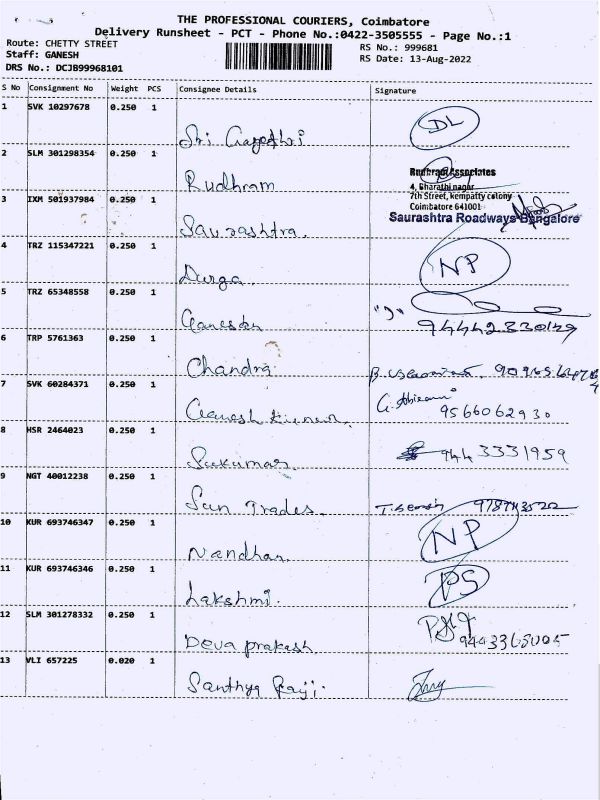 THE PROFESSIONAL COURIERS, Coimbatore
Delivery Runsheet - PCT - Phone No.:0422-3505555 - Page No.:1
Route: CHETTY STREET RS No.: 999681
Staff: GANESH RS Date: 13-Aug-2022
DRS No.: DCJB99968101
S No Consignment No Weight PCS Consignee Details Signature
1 SVK 10297678 0.250 1
Sri Gayathri DL
2 SLM 301298354 0.250 1
Rudhram Rudhram Associates
4, Bharathi nagar
7th Street, kempatty colony
3 IXM 501937984 0.250 1 Coimbatore 641001
Saurashtra. Saurashtra Roadways Bangalore
4 TRZ 115347221 0.250 1
Durga. NP
5 TRZ 65348558 0.250 1
Ganesan
6 TRP 5761363 0.250 1
Chandra
7 SVK 60284371 0.250 1
Ganesh Kumar. 9566062930
8 HSR 2464023 0.250 1
Sukumar. 9443331959
9 NGT 40012238 0.250 1
Sun Trades.
10 KUR 693746347 0.250 1
Nandhan. NP
11 KUR 693746346 0.250 1
Lakshmi. PS
12 SLM 301278332 0.250 1
Deva prakash
13 VLI 657225 0.020 1
Santhya Raji.